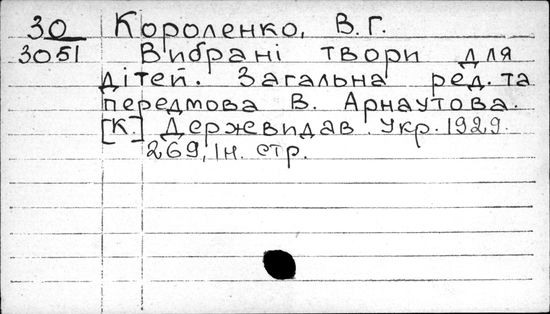 30 Короленко, В.Г.
3051 Вибрані твори для
дітей. Загальна ред. та
передмова В. Арнаутова.
[К.] Держевидав. Укр. 1929.
269, 1н. стр.